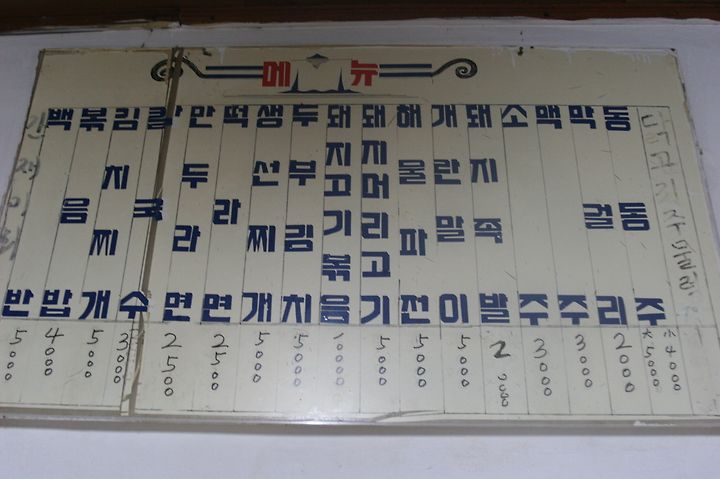 메뉴
백반 5000
볶음밥 4000
김치찌개 5000
칼국수 3000
만두라면 2500
떡라면 2500
생선찌개 5000
두부김치 5000
돼지고기볶음 10000
돼지머리고기 5000
해물파전 5000
개란말이 5000
돼지족발
소주 3000
맥주 3000
막걸리 2000
동동주 大 5000 小 4000
닭고기주물럭